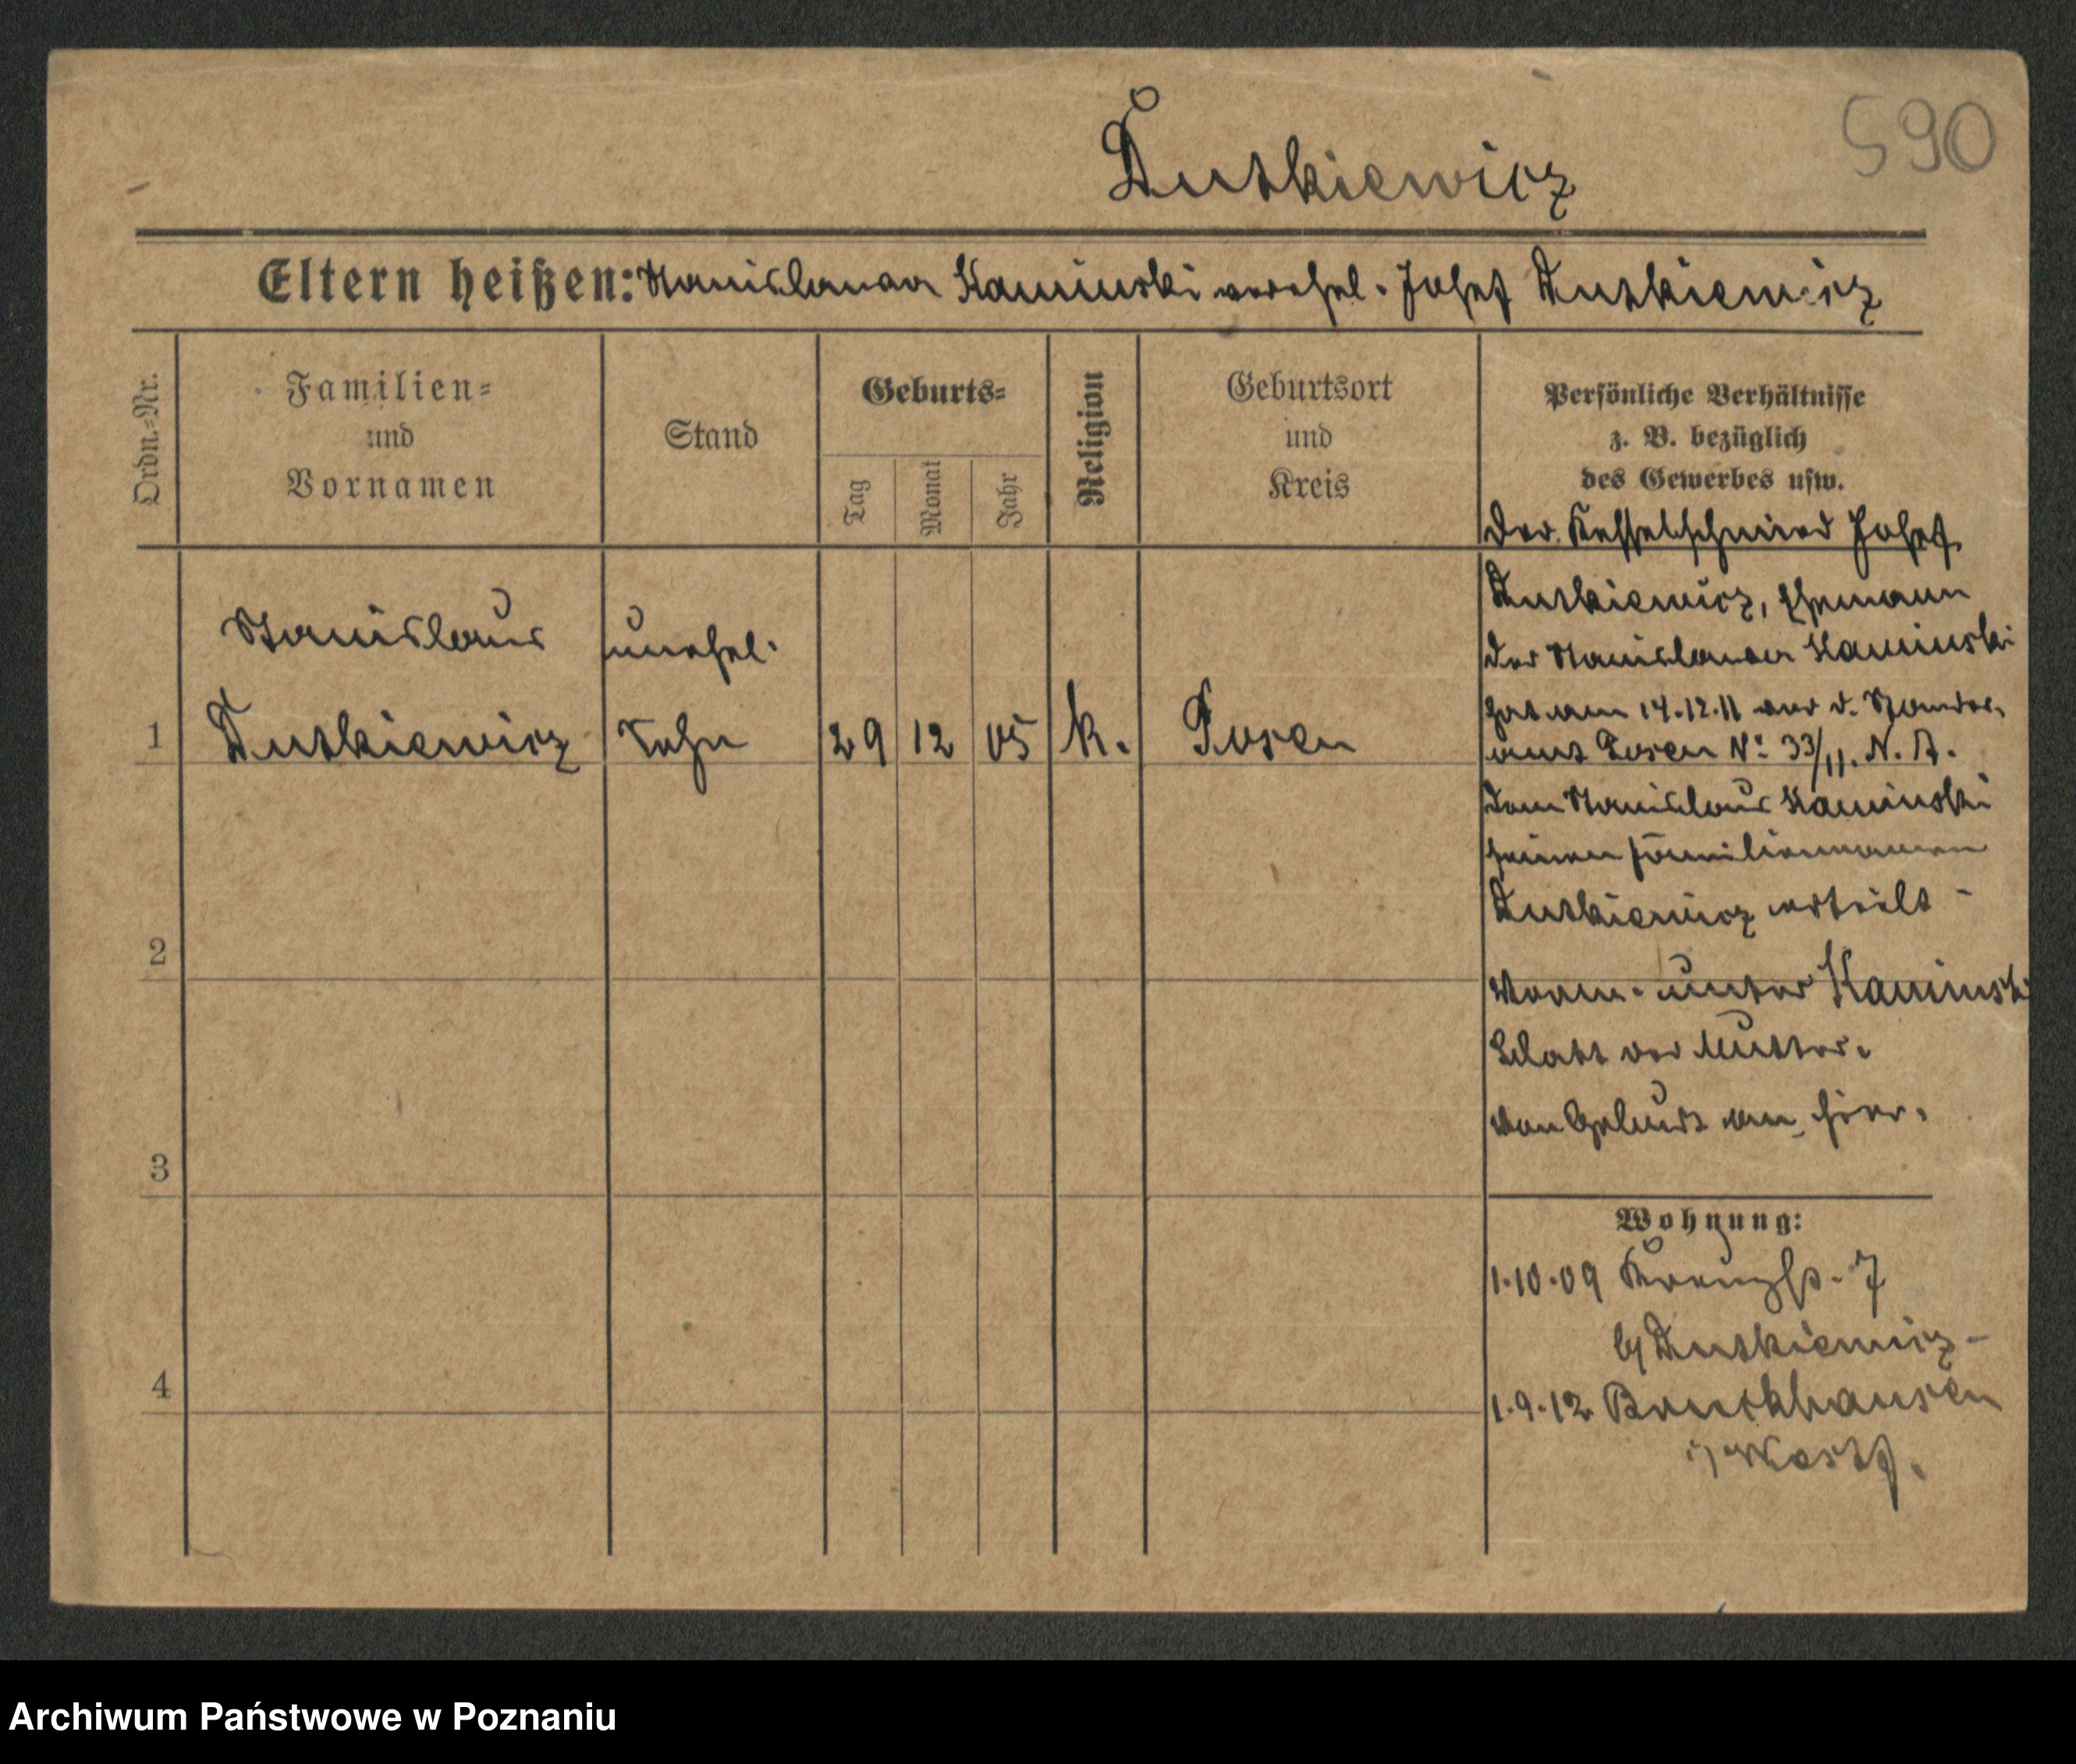 590
Dutkiewicz
Eltern heißen: Stanislawa Kaminski verehel. Josef Dutkiewicz
Ordn.-Nr.
Familien-
und
Vornamen
Stand
Geburts-
Tag
Monat
Jahr
Religion
Geburtsort
und
Kreis
Persönliche Verhältnisse
z. B. bezüglich
des Gewerbes usw.
Der Kesselschmied Josef
Dutkiewicz, Ehemann
der Stanislawa Kaminski
hat am 14.12.11 vor d. Standes-
amt Posen No 33/11. N. A.
dem Stanislaus Kaminski
seinen Familiennamen
Dutkiewicz erteilt -
unter Kaminski
Blatt der Mutter.
von Geburt an hier.
Stanislaus unehel.
1 Dutkiewicz Sohn 29 12 05 k. Posen
2
3
4
Wohnung:
1.10.09 Kreuzstr. 7
b/ Dutkiewicz -
1.9.12 Bruckhausen
i/ Westf.
Archiwum Państwowe w Poznaniu